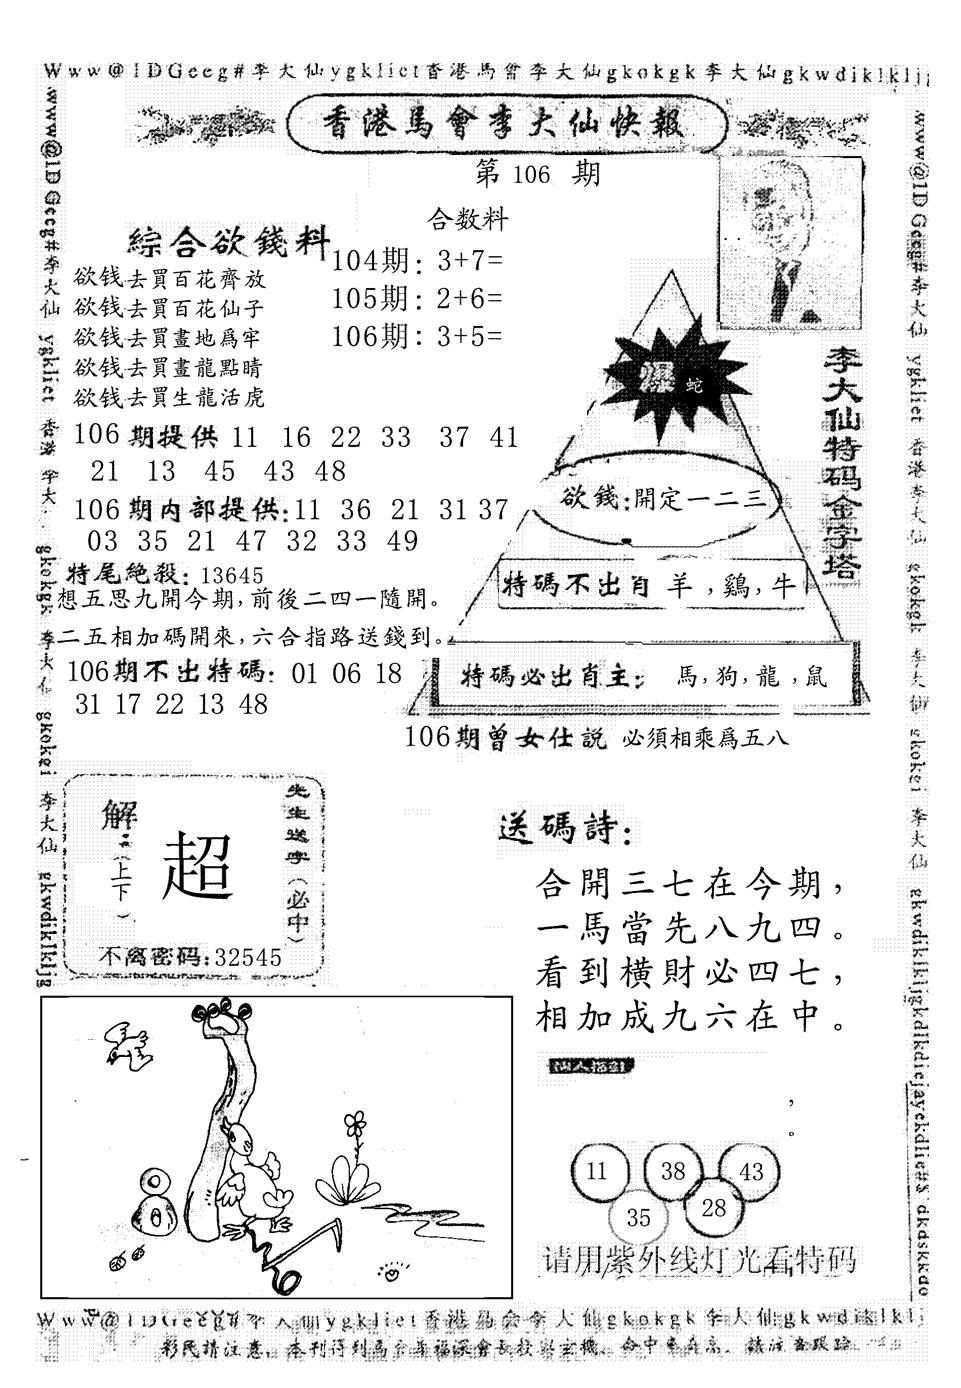 Www@1DGeeg#李大仙ygkliet香港馬會李大仙gkokgk李大仙gkwdiklkljg
香港馬會李大仙快報
第 106 期
合数料
綜合欲錢料
104期: 3+7=
105期: 2+6=
106期: 3+5=
欲钱去買百花齊放
欲钱去買百花仙子
欲钱去買畫地爲牢
欲钱去買畫龍點晴
欲钱去買生龍活虎
106期提供 11 16 22 33 37 41
21 13 45 43 48
106期内部提供:11 36 21 31 37
03 35 21 47 32 33 49
特尾絶殺: 13645
想五思九開今期,前後二四一隨開。
二五相加碼開來,六合指路送錢到。
106期不出特碼: 01 06 18
31 17 22 13 48
爆 蛇
欲錢:開定一二三
特碼不出肖 羊,鷄,牛
特碼必出肖主: 馬,狗,龍,鼠
李大仙特码金字塔
106期曾女仕説 必須相乘爲五八
先生送字(必中)
解:(上下)
超
不离密码:32545
送碼詩:
合開三七在今期,
一馬當先八九四。
看到橫財必四七,
相加成九六在中。
,
。
11 38 43
35 28
请用紫外线灯光看特码
www@1DGeeg#李大仙 ygkliet 香港 李大 gkokgk 李大仙 gkokei 李大仙 gkwdiklkljg
www@1DGeeg#李大仙 ygkliet 香港李大仙 gkokgk 李大仙 gkokei 李大仙 gkwdiklkljgkdlkdiejayekdlie#$ dkdskkdo
Www@1DGeeg#李大仙ygkliet香港馬会李大仙gkokgk李大仙gkwdiklklj
彩民請注意,本刊得到馬會